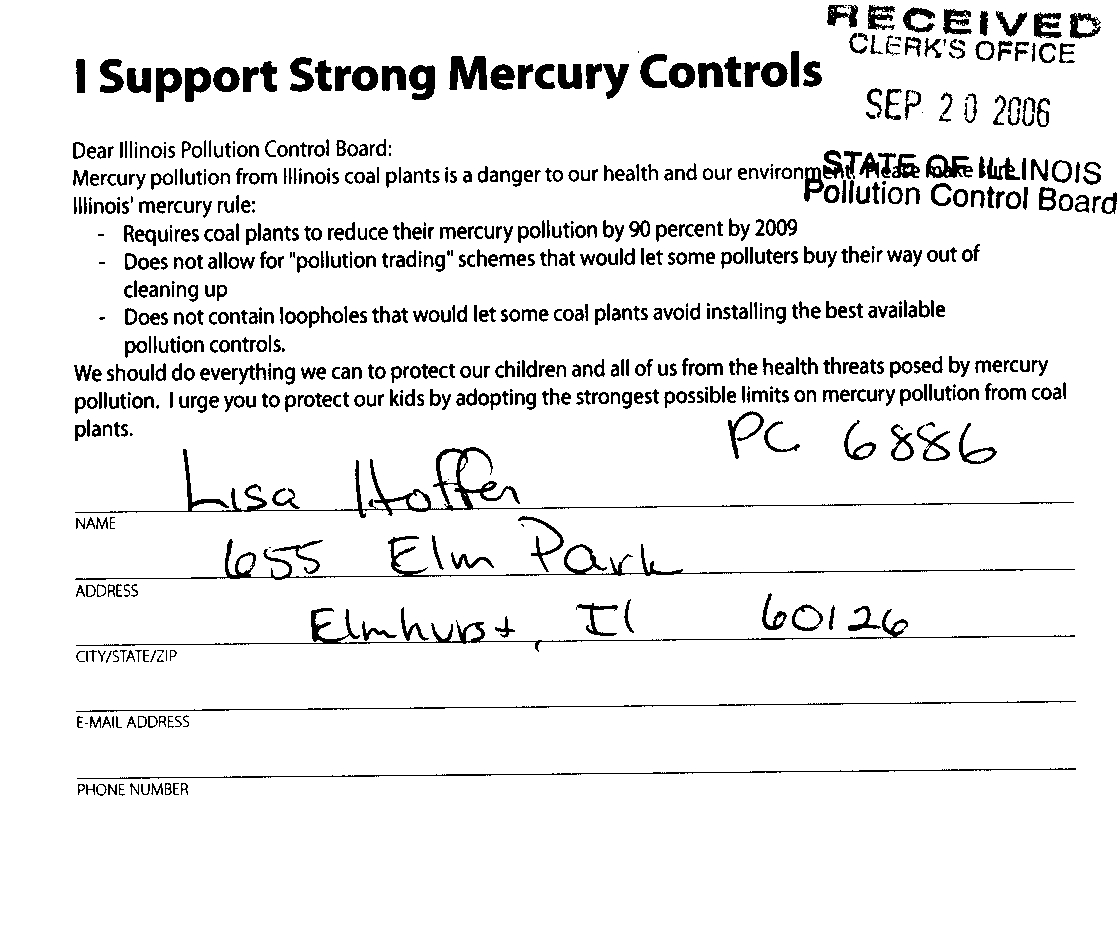 RECEIVED
CLERK'S OFFICE
I Support Strong Mercury Controls
SEP 20 2006
Dear Illinois Pollution Control Board:
STATE OF ILLINOIS
Mercury pollution from Illinois coal plants is a danger to our health and our environment. Please make sure
Pollution Control Board
Illinois' mercury rule:
- Requires coal plants to reduce their mercury pollution by 90 percent by 2009
- Does not allow for "pollution trading" schemes that would let some polluters buy their way out of
cleaning up
- Does not contain loopholes that would let some coal plants avoid installing the best available
pollution controls.
We should do everything we can to protect our children and all of us from the health threats posed by mercury
pollution. I urge you to protect our kids by adopting the strongest possible limits on mercury pollution from coal
plants.
PC 6886
Lisa Hoffer
NAME
655 Elm Park
ADDRESS
Elmhurst, Il 60126
CITY/STATE/ZIP
E-MAIL ADDRESS
PHONE NUMBER